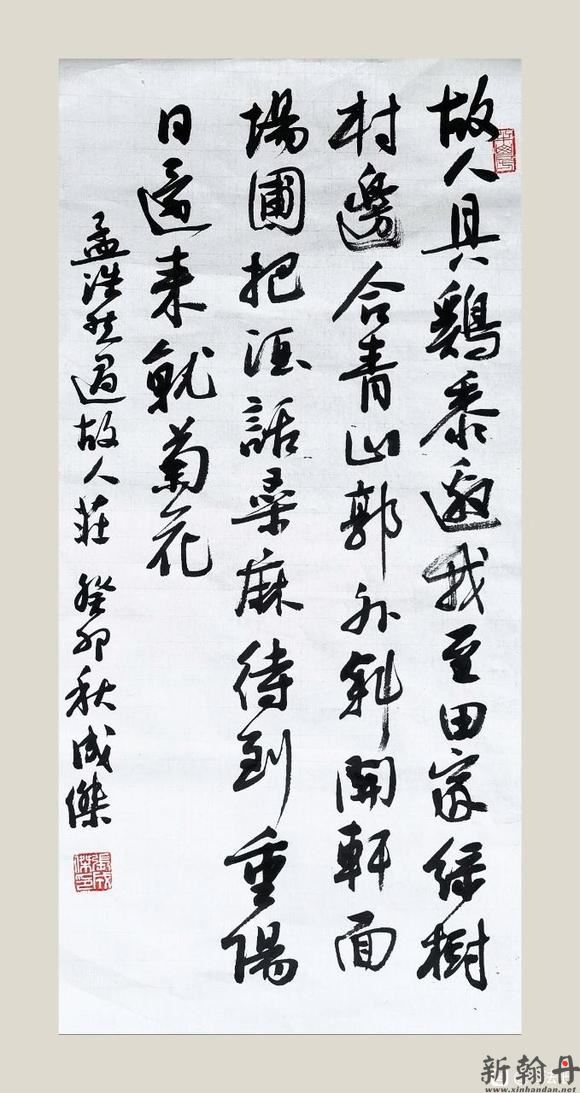 故人具鷄黍邀我至田家綠樹
村邊合青山郭外斜開軒面
場圃把酒話桑麻待到重陽
日還来就菊花
孟浩然過故人莊 癸卯秋成傑
張成傑印
新翰丹
www.xinhandan.net